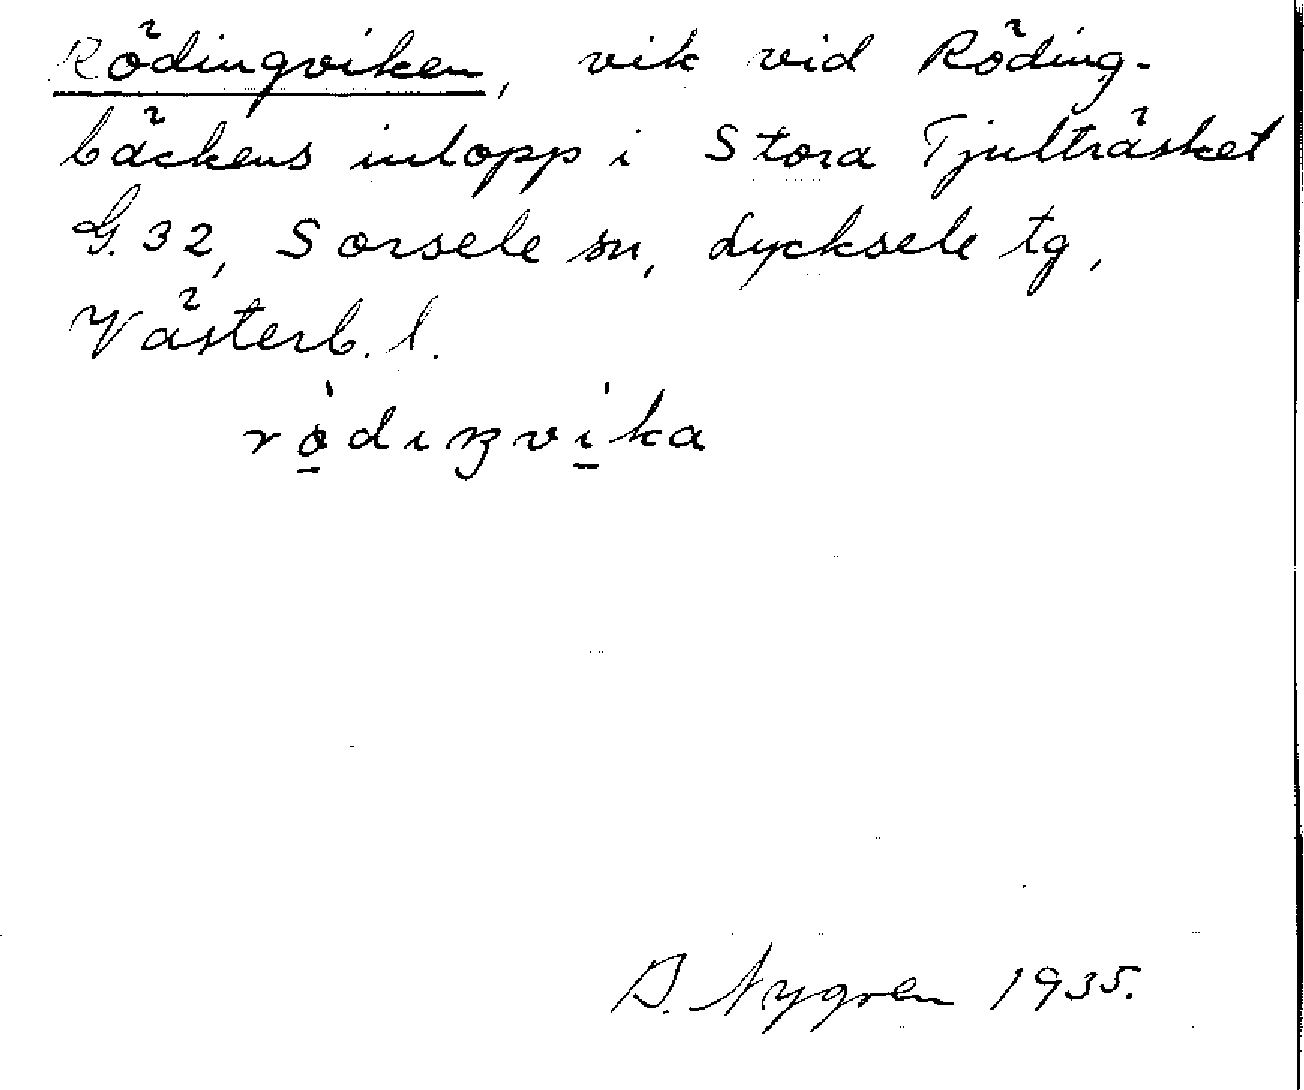 Rödingviken, vik vid Röding-
bäckens inlopp i Stora Tjulträsket
G. 32, Sorsele sn, Lycksele tg,
Västerb. l.
rö̱́dıŋví̱ka
A. Nygren 1935.